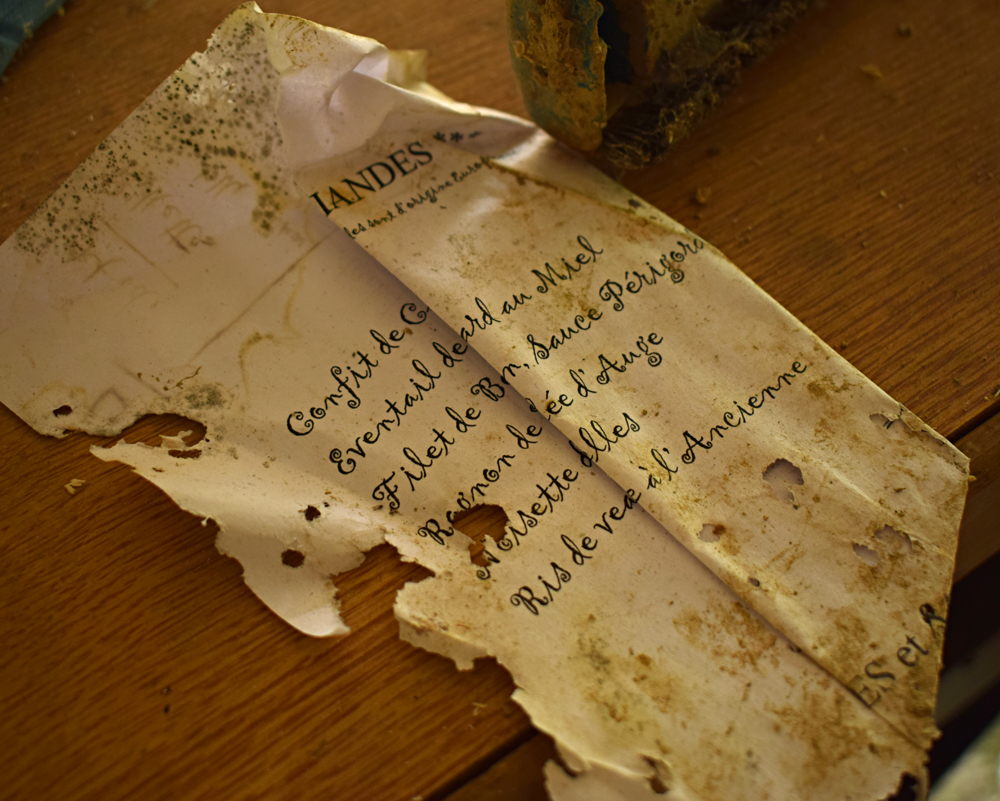 IANDES ***
les sont d'origine Euro
Confit de C
Eventail de ard au Miel
Filet de B n, Sauce Périgord
Rognon de ée d'Auge
Noisette d lles
Ris de vea à l'Ancienne
ES et